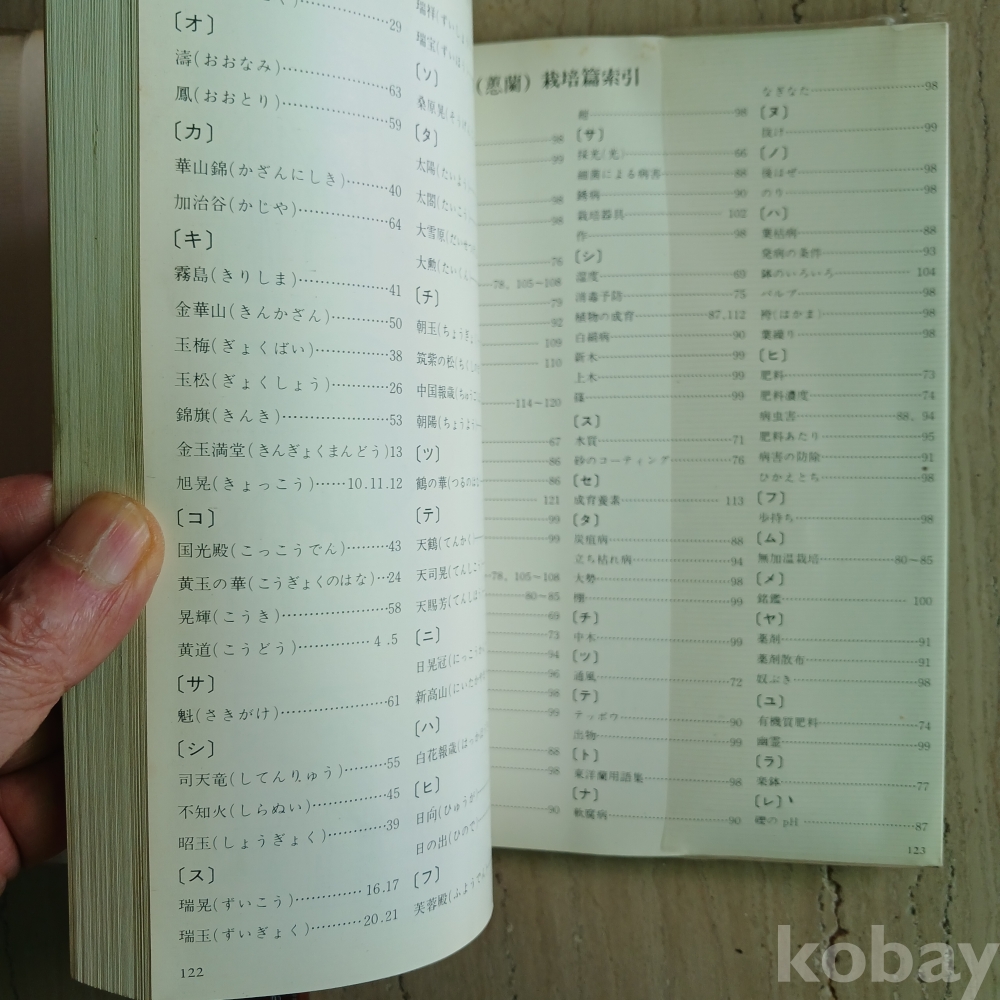 29
〔オ〕
濤(おおなみ)……………63
鳳(おおとり)……………59
〔カ〕
華山錦(かざんにしき)………40
加治谷(かじや)……………64
〔キ〕
霧島(きりしま)……………41
金華山(きんかざん)…………50
玉梅(ぎょくばい)……………38
玉松(ぎょくしょう)…………26
錦旗(きんき)………………53
金玉満堂(きんぎょくまんどう)13
旭晃(きょっこう)……10.11.12
〔コ〕
国光殿(こっこうでん)………43
黄玉の華(こうぎょくのはな)…24
晃輝(こうき)………………58
黄道(こうどう)……………4.5
〔サ〕
魁(さきがけ)………………61
〔シ〕
司天竜(してんりゅう)………55
不知火(しらぬい)……………45
昭玉(しょうぎょく)…………39
〔ス〕
瑞晃(ずいこう)…………16.17
瑞玉(ずいぎょく)………20.21
122
瑞祥(ずいしょ
瑞宝(ずいほ
〔ソ〕
桑原晃(そう
〔タ〕
太陽(たいよう
太閤(たいこう
大雪原(だいせつ
大勲(たいくん
〔チ〕
朝玉(ちょうぎょ
筑紫の松(ちくし
中国報歳(ちゅうご
朝陽(ちょうよう
〔ツ〕
鶴の華(つるのは
〔テ〕
天鶴(てんかく
天司晃(てんしこ
天賜芳(てんしほ
〔ニ〕
日晃冠(にっこう
新高山(にいたか
〔ハ〕
白花報歳(はっか
〔ヒ〕
日向(ひゅうが
日の出(ひので)
〔フ〕
芙蓉殿(ふようでん
(蕙蘭)栽培篇索引
98
99
98
98
76
78, 105~108
79
92
109
110
114~120
67
86
86
121
99
99
78, 105~108
80~85
69
73
94
96
98
99
88
98
90
紺……98
〔サ〕
採光(光)……66
細菌による病害……88
銹病……90
栽培器具……102
作……98
〔シ〕
湿度……69
消毒予防……75
植物の成育……87,112
白絹病……90
新木……99
上木……99
篠……99
〔ス〕
水質……71
砂のコーティング……76
〔セ〕
成育養素……113
〔タ〕
炭疽病……88
立ち枯れ病……94
大勢……98
棚……99
〔チ〕
中木……99
〔ツ〕
通風……72
〔テ〕
テッポウ……90
出物……99
〔ト〕
東洋蘭用語集……98
〔ナ〕
軟腐病……90
なぎなた……98
〔ヌ〕
抜け……99
〔ノ〕
後はぜ……98
のり……98
〔ハ〕
葉枯病……88
発病の条件……93
鉢のいろいろ……104
バルブ……98
袴(はかま)……98
葉繰り……98
〔ヒ〕
肥料……73
肥料濃度……74
病虫害……88, 94
肥料あたり……95
病害の防除……91
ひかえとち……98
〔フ〕
歩持ち……98
〔ム〕
無加温栽培……80~85
〔メ〕
銘鑑……100
〔ヤ〕
薬剤……91
薬剤散布……91
奴ぶき……98
〔ユ〕
有機質肥料……74
幽霊……99
〔ラ〕
楽鉢……77
〔レ〕
礫の pH……87
123
kobay